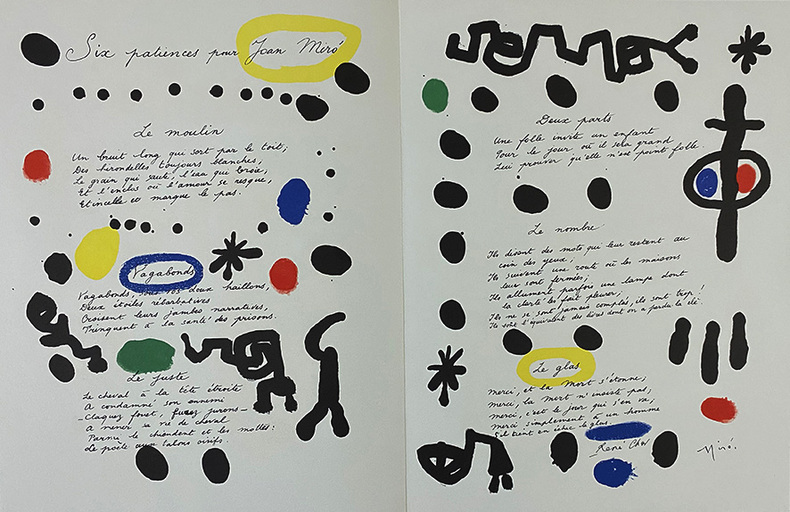 Six patiences pour Joan Miró
Le moulin
Un bruit long qui sort par le toit;
Des hirondelles toujours blanches;
Le grain qui saute, l'eau qui broie,
Et l'enclos où l'amour se risque,
Etincelle et marque le pas.
Vagabonds
Vagabonds, sous vos doux haillons,
Deux étoiles rébarbatives
Croisent leurs jambes narratives,
Trinquent à la santé des prisons.
Le juste
Le cheval à la tête étroite
A condamné son ennemi
- Claquez fouet, fusez jurons -
A mener sa vie de cheval
Parmi le chiendent et les molles:
Le poète aux talons oisifs.
Deux parts
Une folle invite un enfant
Pour le jour où il sera grand
Leur prouver qu'elle n'est point folle.
Le nombre
Ils disent des mots qui leur restent au
coin des yeux;
Ils suivent une route où les maisons
leur sont fermées;
Ils allument parfois une lampe dont
la clarté les fait pleurer;
Ils ne se sont jamais comptés, ils sont trop!
Ils sont l'équivalent des livres dont on a perdu la clé.
Le glas
Merci, et la Mort s'étonne;
Merci, la Mort n'insiste pas;
Merci, c'est le jour qui s'en va;
Merci simplement à un homme
S'il tient en échec le glas.
René Char
Miró.